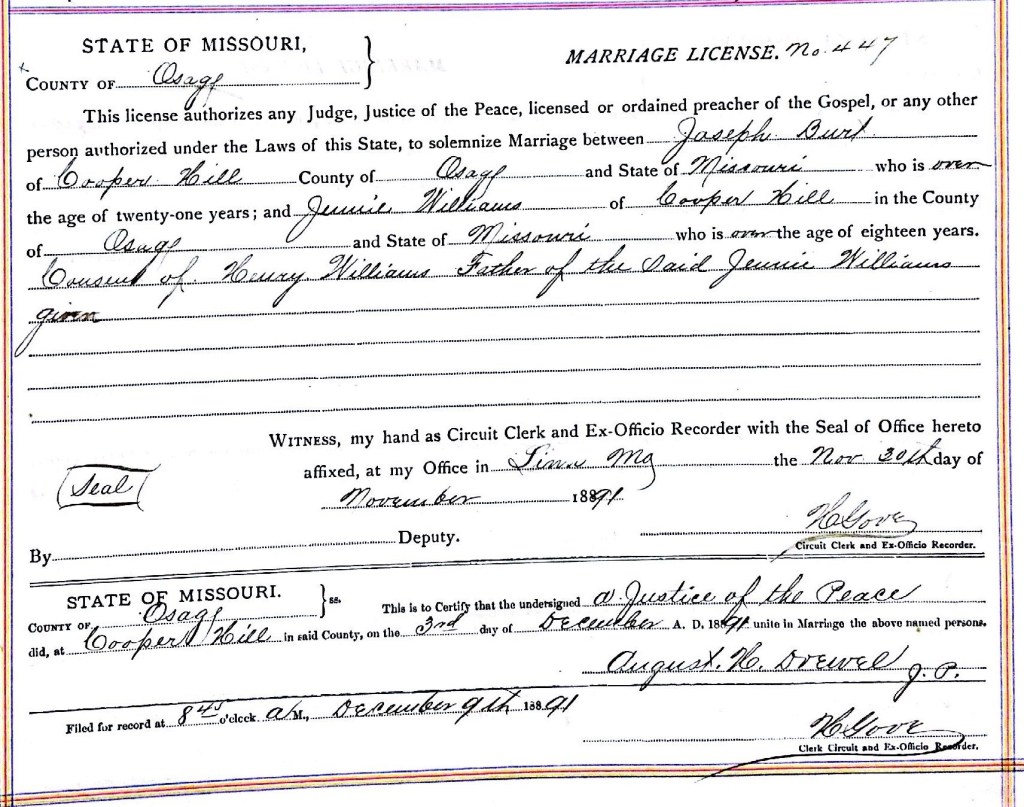 STATE OF MISSOURI,
MARRIAGE LICENSE. No. 447
COUNTY OF Osage
This license authorizes any Judge, Justice of the Peace, licensed or ordained preacher of the Gospel, or any other
person authorized under the Laws of this State, to solemnize Marriage between Joseph Burt
of Cooper Hill County of Osage and State of Missouri who is over
the age of twenty-one years; and Jennie Williams of Cooper Hill in the County
of Osage and State of Missouri who is over the age of eighteen years.
Consent of Henry Williams Father of the Said Jennie Williams
given
WITNESS, my hand as Circuit Clerk and Ex-Officio Recorder with the Seal of Office hereto
affixed, at my Office in Linn Mo the Nov 30th day of
Seal
November 1891
H Gove
By Deputy.
Circuit Clerk and Ex-Officio Recorder.
STATE OF MISSOURI. ss.
COUNTY OF Osage
This is to Certify that the undersigned a Justice of the Peace
did, at Cooper Hill in said County, on the 3rd day of December A. D. 1891 unite in Marriage the above named persons.
August. H. Drewel J. P.
Filed for record at 8 45 o'clock A M., December 9th 1891
H Gove
Clerk Circuit and Ex-Officio Recorder.